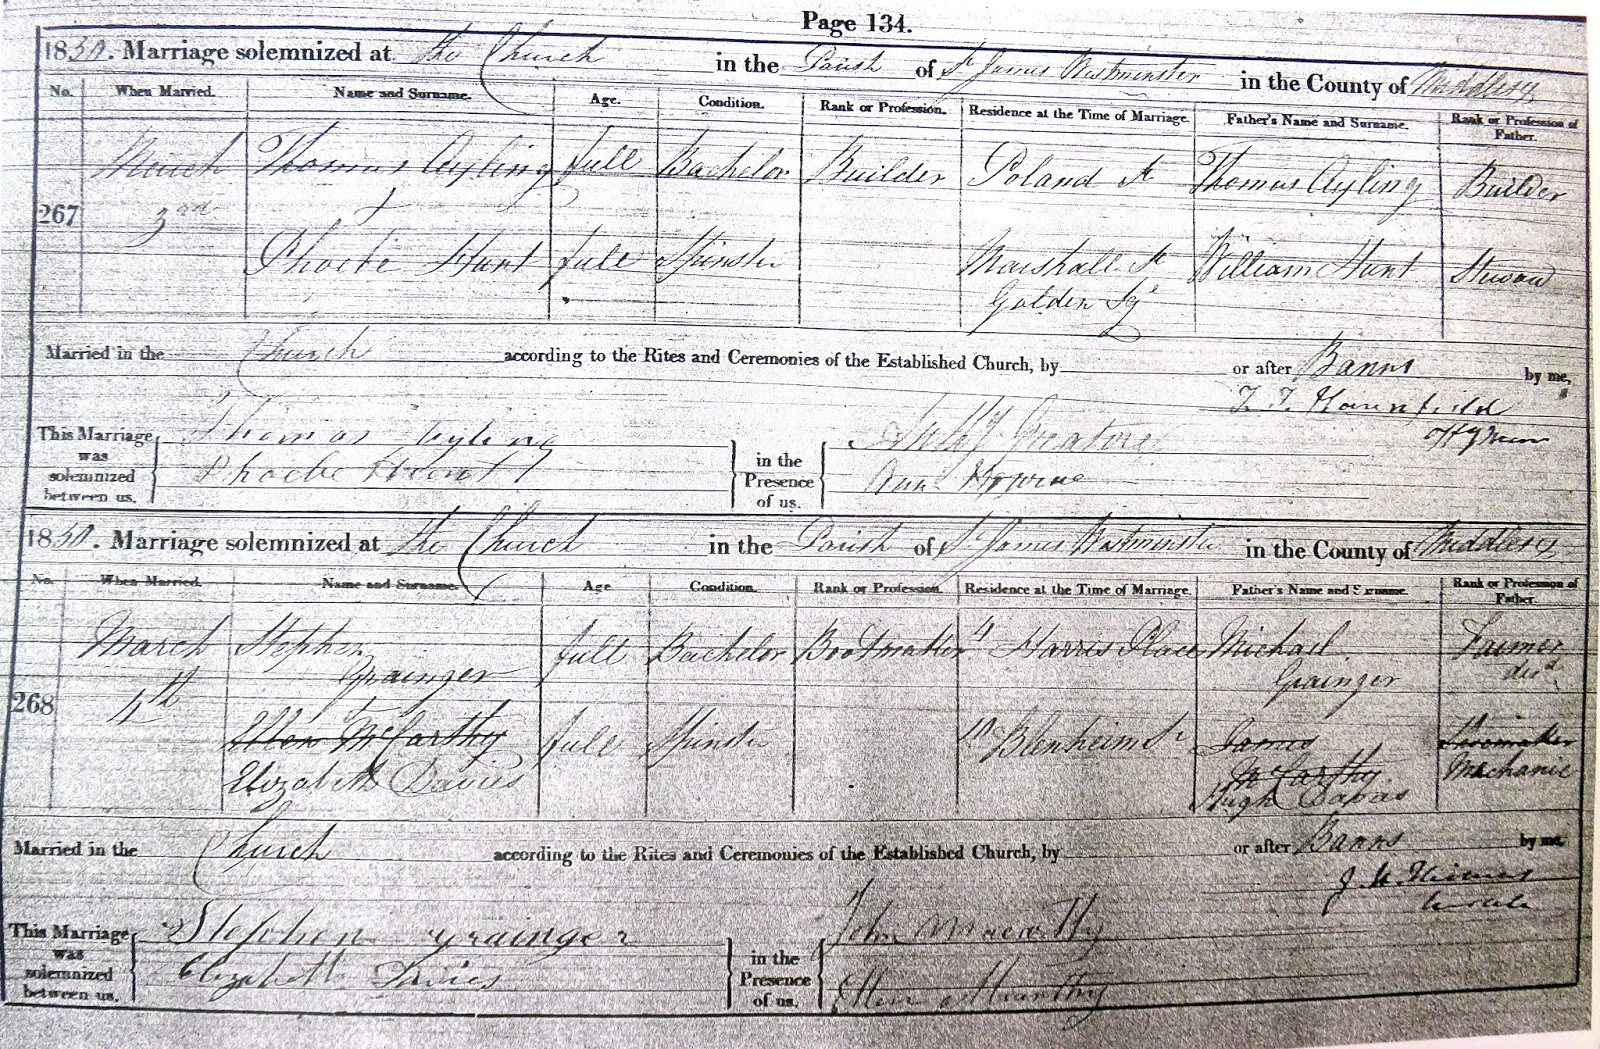 Page 134.
1850. Marriage solemnized at the Church in the Parish of St James Westminster in the County of Middlesex
No. When Married. Name and Surname. Age. Condition. Rank or Profession. Residence at the Time of Marriage. Father's Name and Surname. Rank or Profession of Father.
267 March 3rd Thomas Ayling full Bachelor Builder Poland St Thomas Ayling Builder
Phoebe Hunt full Spinster Marshall St William Hunt Steward
Golden Sqe
Married in the Church according to the Rites and Ceremonies of the Established Church, by or after Banns by me,
This Marriage was solemnized between us, Thomas Ayling
Phoebe Hunt
in the Presence of us.
Ann
1850. Marriage solemnized at the Church in the Parish of St James Westminster in the County of Middlesex
No. When Married. Name and Surname. Age Condition. Rank or Profession. Residence at the Time of Marriage. Father's Name and Surname. Rank or Profession of Father.
268 March 4th Stephen Grainger full Bachelor Bootmaker 4 Harris Place Michael Grainger Farmer decd
Ellen McCarthy full Spinster 10 Blenheim St James McCarthy
Elizabeth Davies Hugh Davies Mechanic
Married in the Church according to the Rites and Ceremonies of the Established Church, by or after Banns by me,
J.
Curate
This Marriage was solemnized between us, Stephen Grainger
Elizabeth Davies
in the Presence of us. John
Ellen